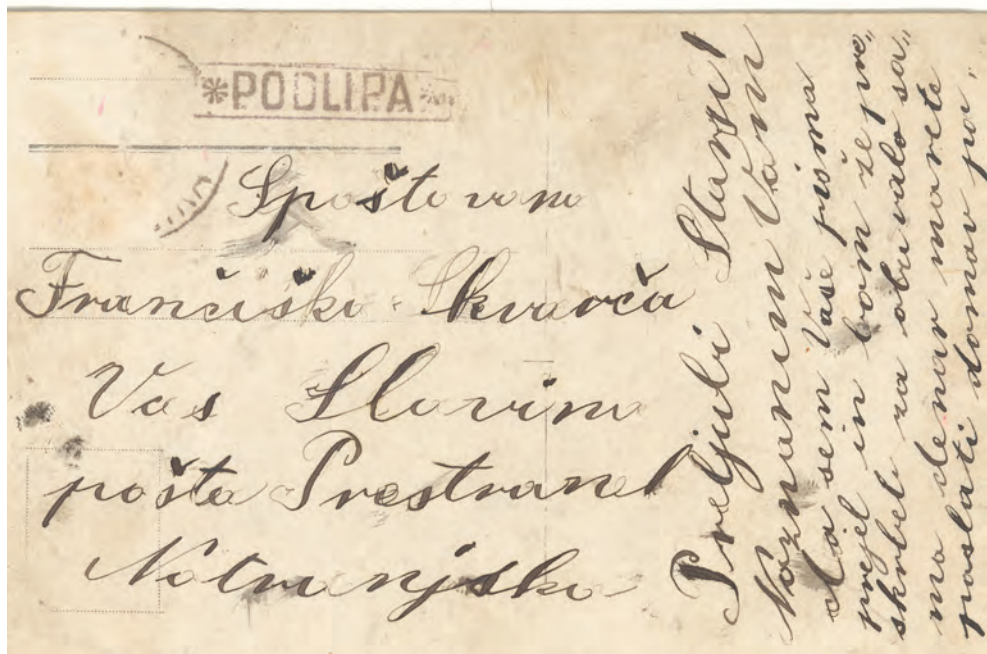 *PODLIPA*
Spoštovana
Frančiška Skvarča
Vas Slavina
pošta Prestranek
Notranjsko
Preljubi Starši!
Naznanim Vam
da sem Vaše pisma
prejel in bom že pre„
skrbel za obuvalo sa„
mo denar morete
poslati domov po„